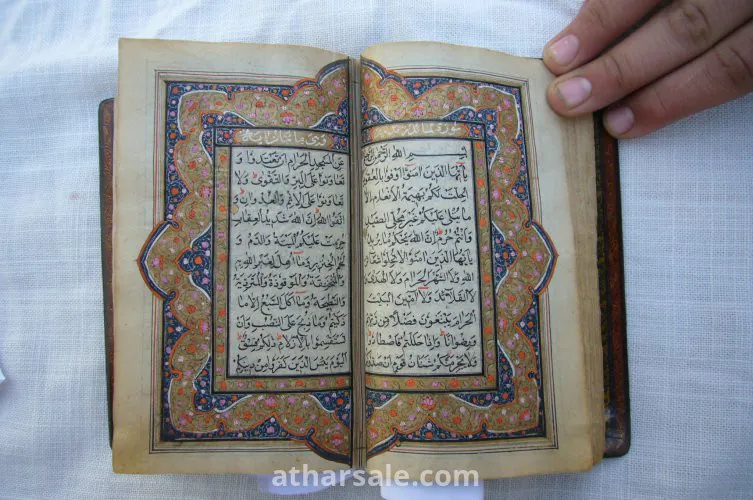 بسم الله الرحمن الرحيم
يأيها الذين امنوا اوفوا بالعقود
احلت لكم بهيمة الانعام الا
ما يتلى عليكم غير محلي الصيد
وانتم حرم ان الله يحكم ما يريد
يأيها الذين امنوا لا تحلوا شعائر
الله ولا الشهر الحرام ولا الهدي
ولا القلائد ولا آمين البيت
الحرام يبتغون فضلا من ربهم
ورضوانا واذا حللتم فاصطادوا
ولا يجرمنكم شنآن قوم ان صدوكم
عن المسجد الحرام ان تعتدوا و
تعاونوا على البر والتقوى ولا
تعاونوا على الاثم والعدوان و
اتقوا الله ان الله شديد العقاب
حرمت عليكم الميتة والدم و
لحم الخنزير وما اهل لغير الله به
والمنخنقة والموقوذة والمتردية
والنطيحة وما اكل السبع الا ما
ذكيتم وما ذبح على النصب وان
تستقسموا بالازلام ذلكم فسق
اليوم يئس الذين كفروا من دينكم
atharsale.com